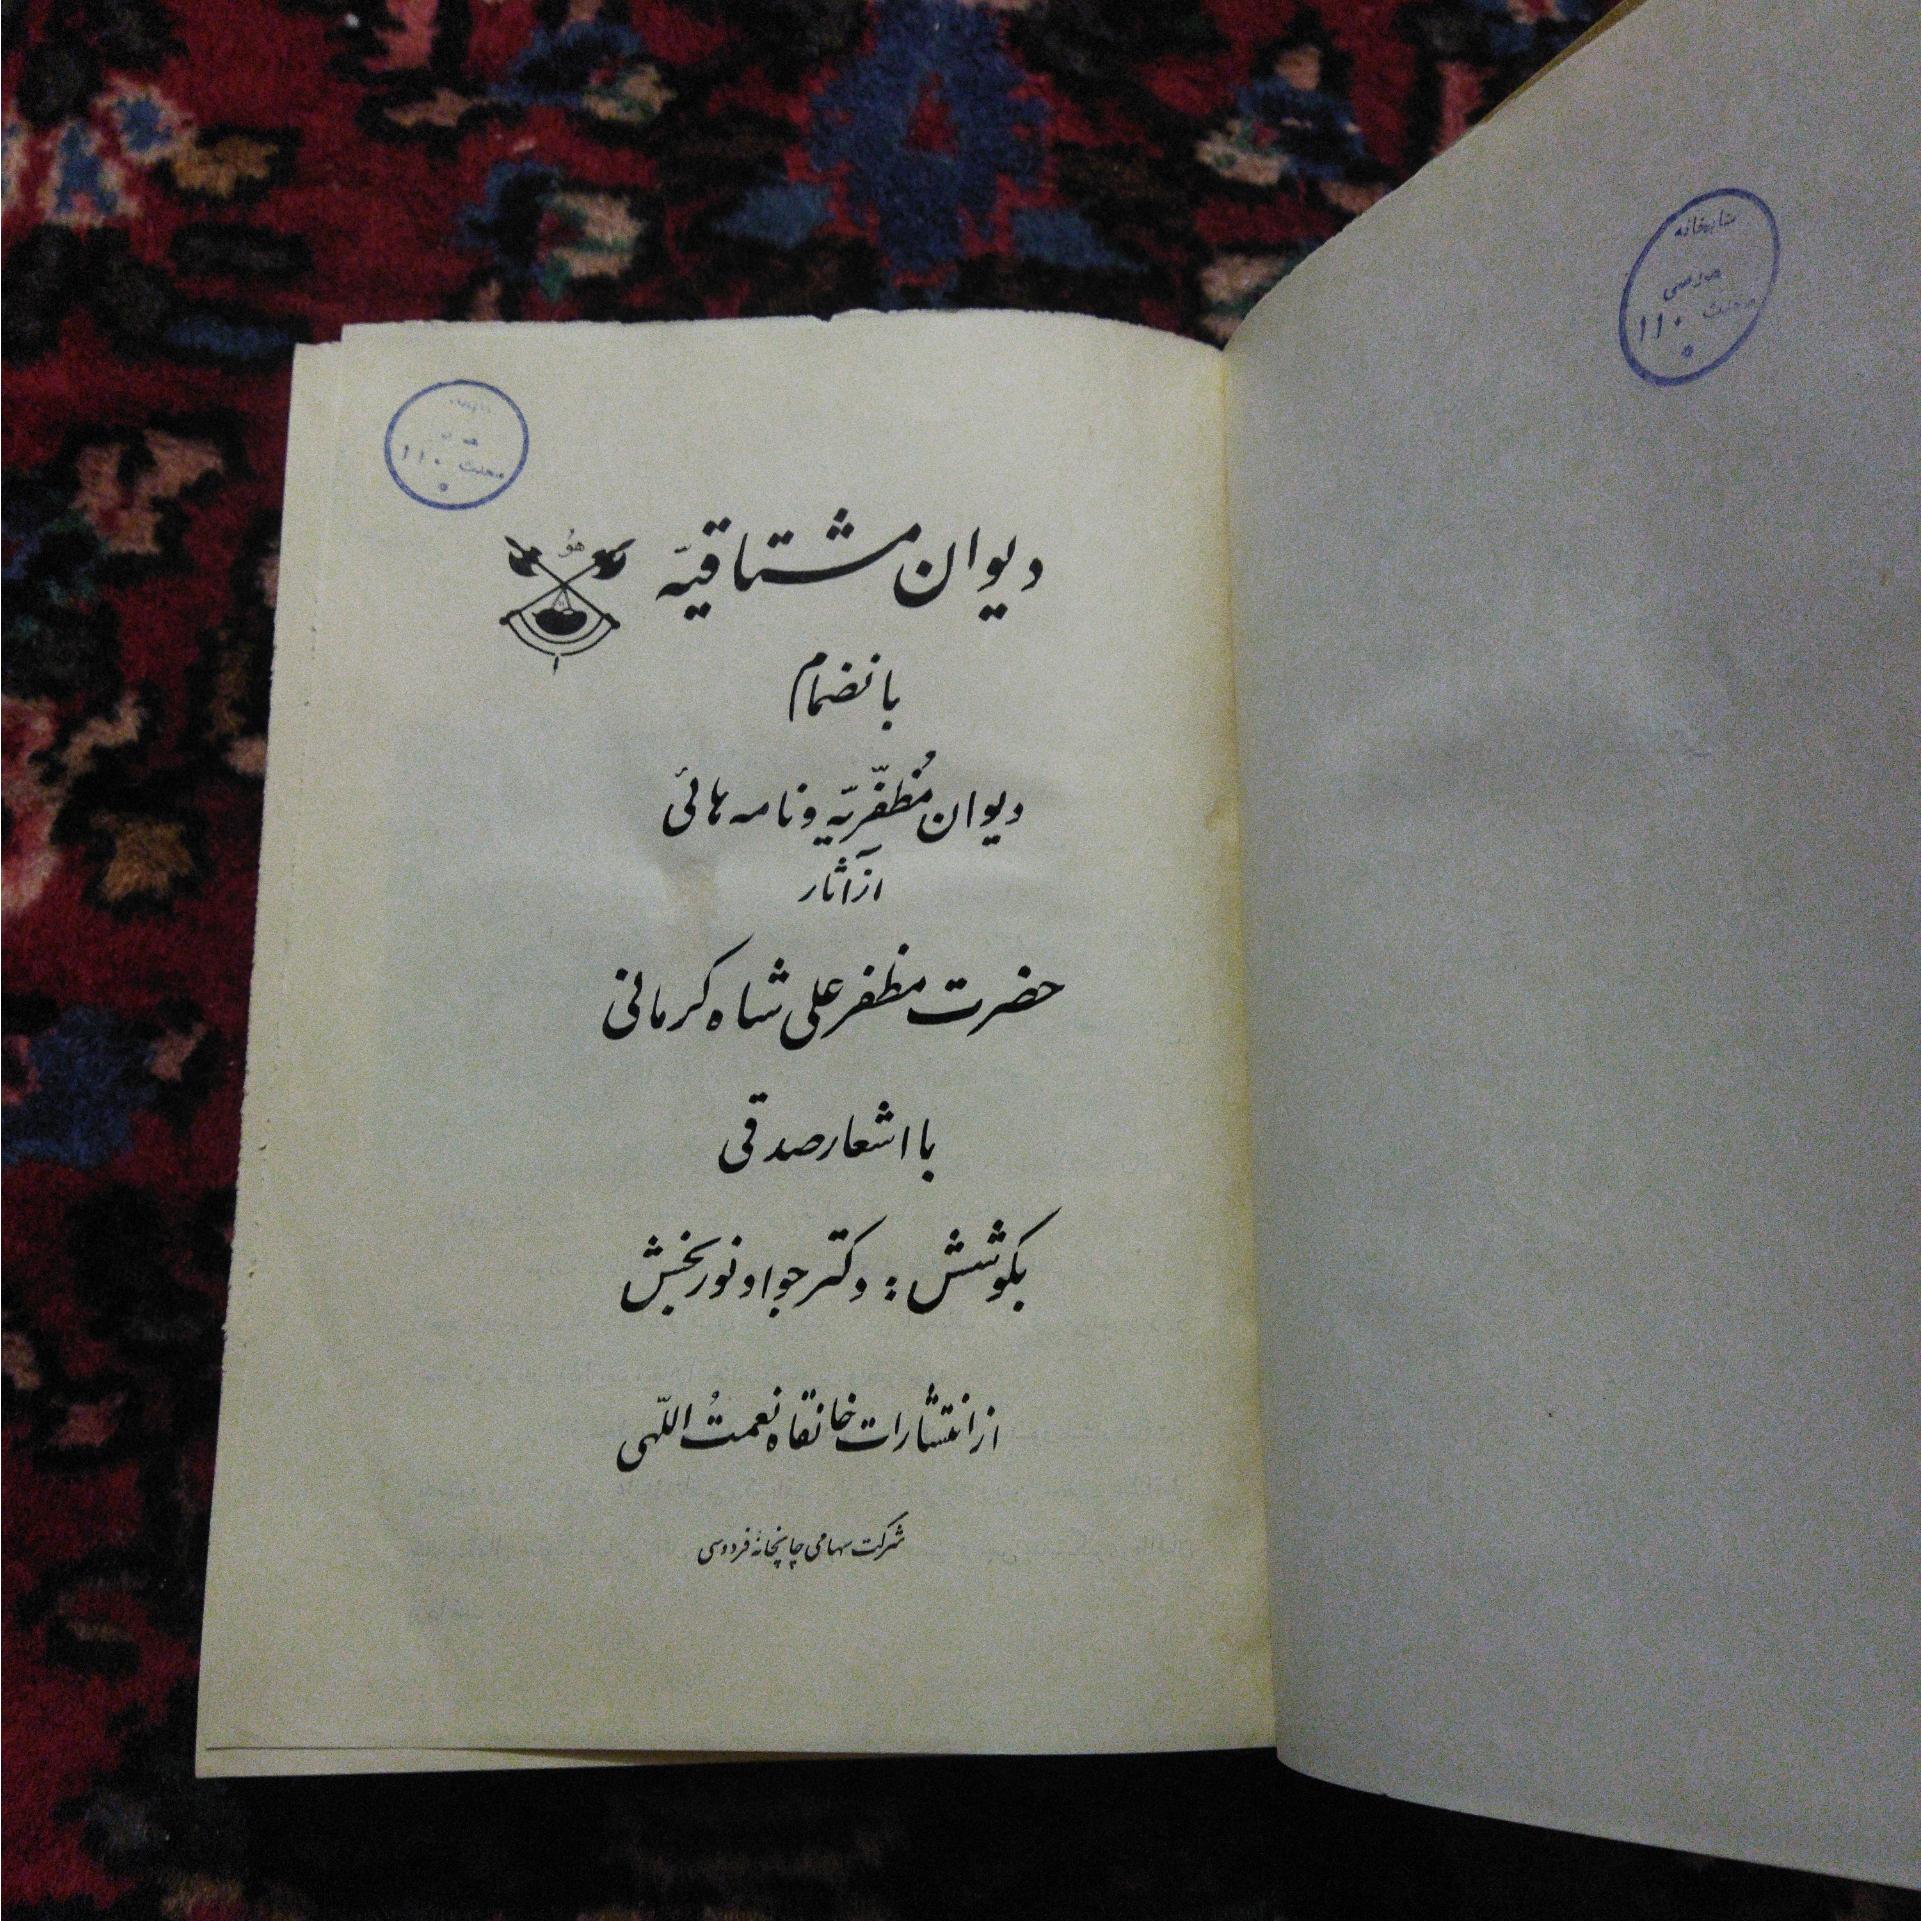 کتابخانه
۱۱۰
۱۱۰
دیوان مشتاقیّه
هُو
بانضمام
دیوان مُظفّریّه و نامه هائی
از آثار
حضرت مظفر علی شاه کرمانی
با اشعار صدقی
بکوشش : دکتر جواد نوربخش
از انتشارات خانقاه نعمتُ اللّهی
شرکت سهامی چاپخانهٔ فردوسی